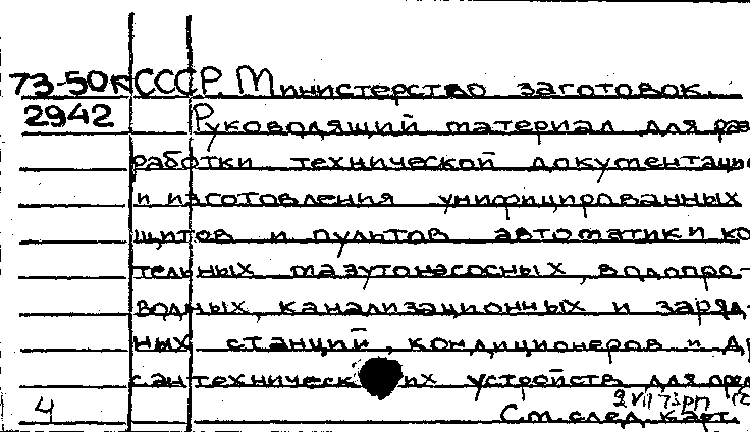 73-50к СССР. Министерство заготовок.
2942 Руководящий материал для раз
работки технической документаци
и изготовления унифицированных
щитов и пультов автоматики ко
тельных мазутонасосных, водопро-
водных, канализационных и заряд-
ных станций, кондиционеров и др
сантехнических устройств для пред
4
См. след. карт.